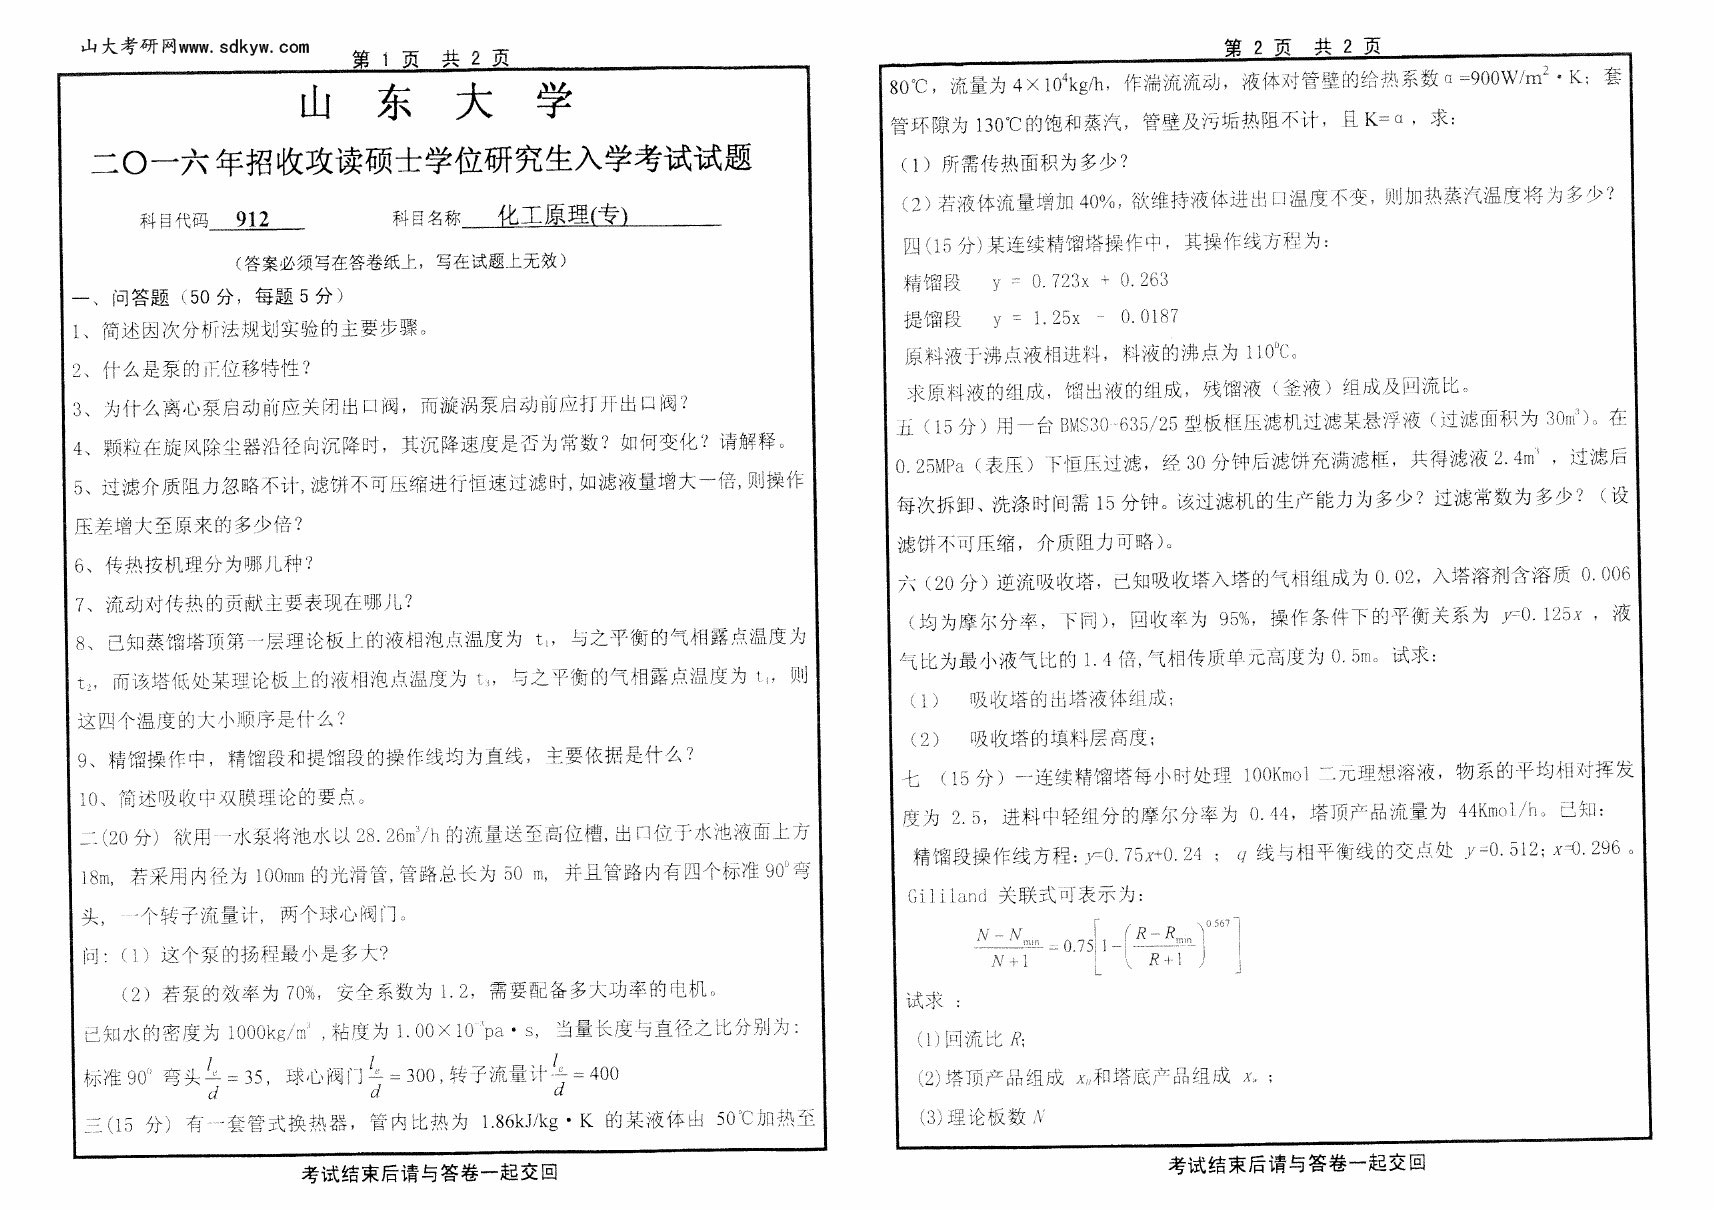 山大考研网www.sdkyw.com
第 1 页 共 2 页
山 东 大 学
二〇一六年招收攻读硕士学位研究生入学考试试题
科目代码 912 科目名称 化工原理(专)
（答案必须写在答卷纸上，写在试题上无效）
一、问答题（50 分，每题 5 分）
1、简述因次分析法规划实验的主要步骤。
2、什么是泵的正位移特性？
3、为什么离心泵启动前应关闭出口阀，而漩涡泵启动前应打开出口阀？
4、颗粒在旋风除尘器沿径向沉降时，其沉降速度是否为常数？如何变化？请解释。
5、过滤介质阻力忽略不计,滤饼不可压缩进行恒速过滤时,如滤液量增大一倍,则操作
压差增大至原来的多少倍？
6、传热按机理分为哪几种？
7、流动对传热的贡献主要表现在哪儿？
8、已知蒸馏塔顶第一层理论板上的液相泡点温度为 t₁，与之平衡的气相露点温度为
t₂，而该塔低处某理论板上的液相泡点温度为 t₃，与之平衡的气相露点温度为 t₄，则
这四个温度的大小顺序是什么？
9、精馏操作中，精馏段和提馏段的操作线均为直线，主要依据是什么？
10、简述吸收中双膜理论的要点。
二(20 分) 欲用一水泵将池水以 28.26m³/h 的流量送至高位槽,出口位于水池液面上方
18m, 若采用内径为 100mm 的光滑管,管路总长为 50 m, 并且管路内有四个标准 90⁰弯
头, 一个转子流量计, 两个球心阀门。
问:（1）这个泵的扬程最小是多大?
（2）若泵的效率为 70%，安全系数为 1.2，需要配备多大功率的电机。
已知水的密度为 1000kg/m³ ,粘度为 1.00×10⁻³pa·s, 当量长度与直径之比分别为:
标准 90⁰ 弯头 lₑ/d = 35, 球心阀门 lₑ/d = 300,转子流量计 lₑ/d = 400
三(15 分) 有一套管式换热器，管内比热为 1.86kJ/kg·K 的某液体由 50℃加热至
考试结束后请与答卷一起交回
第 2 页 共 2 页
80℃，流量为 4×10⁴kg/h，作湍流流动，液体对管壁的给热系数α=900W/m²·K；套
管环隙为 130℃的饱和蒸汽，管壁及污垢热阻不计，且 K=α，求：
（1）所需传热面积为多少？
（2）若液体流量增加 40%，欲维持液体进出口温度不变，则加热蒸汽温度将为多少？
四(15 分)某连续精馏塔操作中，其操作线方程为：
精馏段 y = 0.723x + 0.263
提馏段 y = 1.25x - 0.0187
原料液于沸点液相进料，料液的沸点为 110⁰C。
求原料液的组成，馏出液的组成，残馏液（釜液）组成及回流比。
五（15 分）用一台 BMS30-635/25 型板框压滤机过滤某悬浮液（过滤面积为 30m³）。在
0.25MPa（表压）下恒压过滤，经 30 分钟后滤饼充满滤框，共得滤液 2.4m³ ，过滤后
每次拆卸、洗涤时间需 15 分钟。该过滤机的生产能力为多少？过滤常数为多少？（设
滤饼不可压缩，介质阻力可略）。
六（20 分）逆流吸收塔，已知吸收塔入塔的气相组成为 0.02，入塔溶剂含溶质 0.006
（均为摩尔分率，下同），回收率为 95%，操作条件下的平衡关系为 y=0.125x ，液
气比为最小液气比的 1.4 倍,气相传质单元高度为 0.5m。试求：
（1） 吸收塔的出塔液体组成;
（2） 吸收塔的填料层高度;
七 （15 分）一连续精馏塔每小时处理 100Kmol 二元理想溶液，物系的平均相对挥发
度为 2.5，进料中轻组分的摩尔分率为 0.44，塔顶产品流量为 44Kmol/h。已知：
精馏段操作线方程: y=0.75x+0.24 ； q 线与相平衡线的交点处 y=0.512; x=0.296 。
Gililand 关联式可表示为：
(N－N_min)/(N+1) = 0.75[1－((R－R_min)/(R+1))^0.567]
试求 ：
(1)回流比 R;
(2)塔顶产品组成 x_D和塔底产品组成 x_w ;
(3)理论板数 N
考试结束后请与答卷一起交回